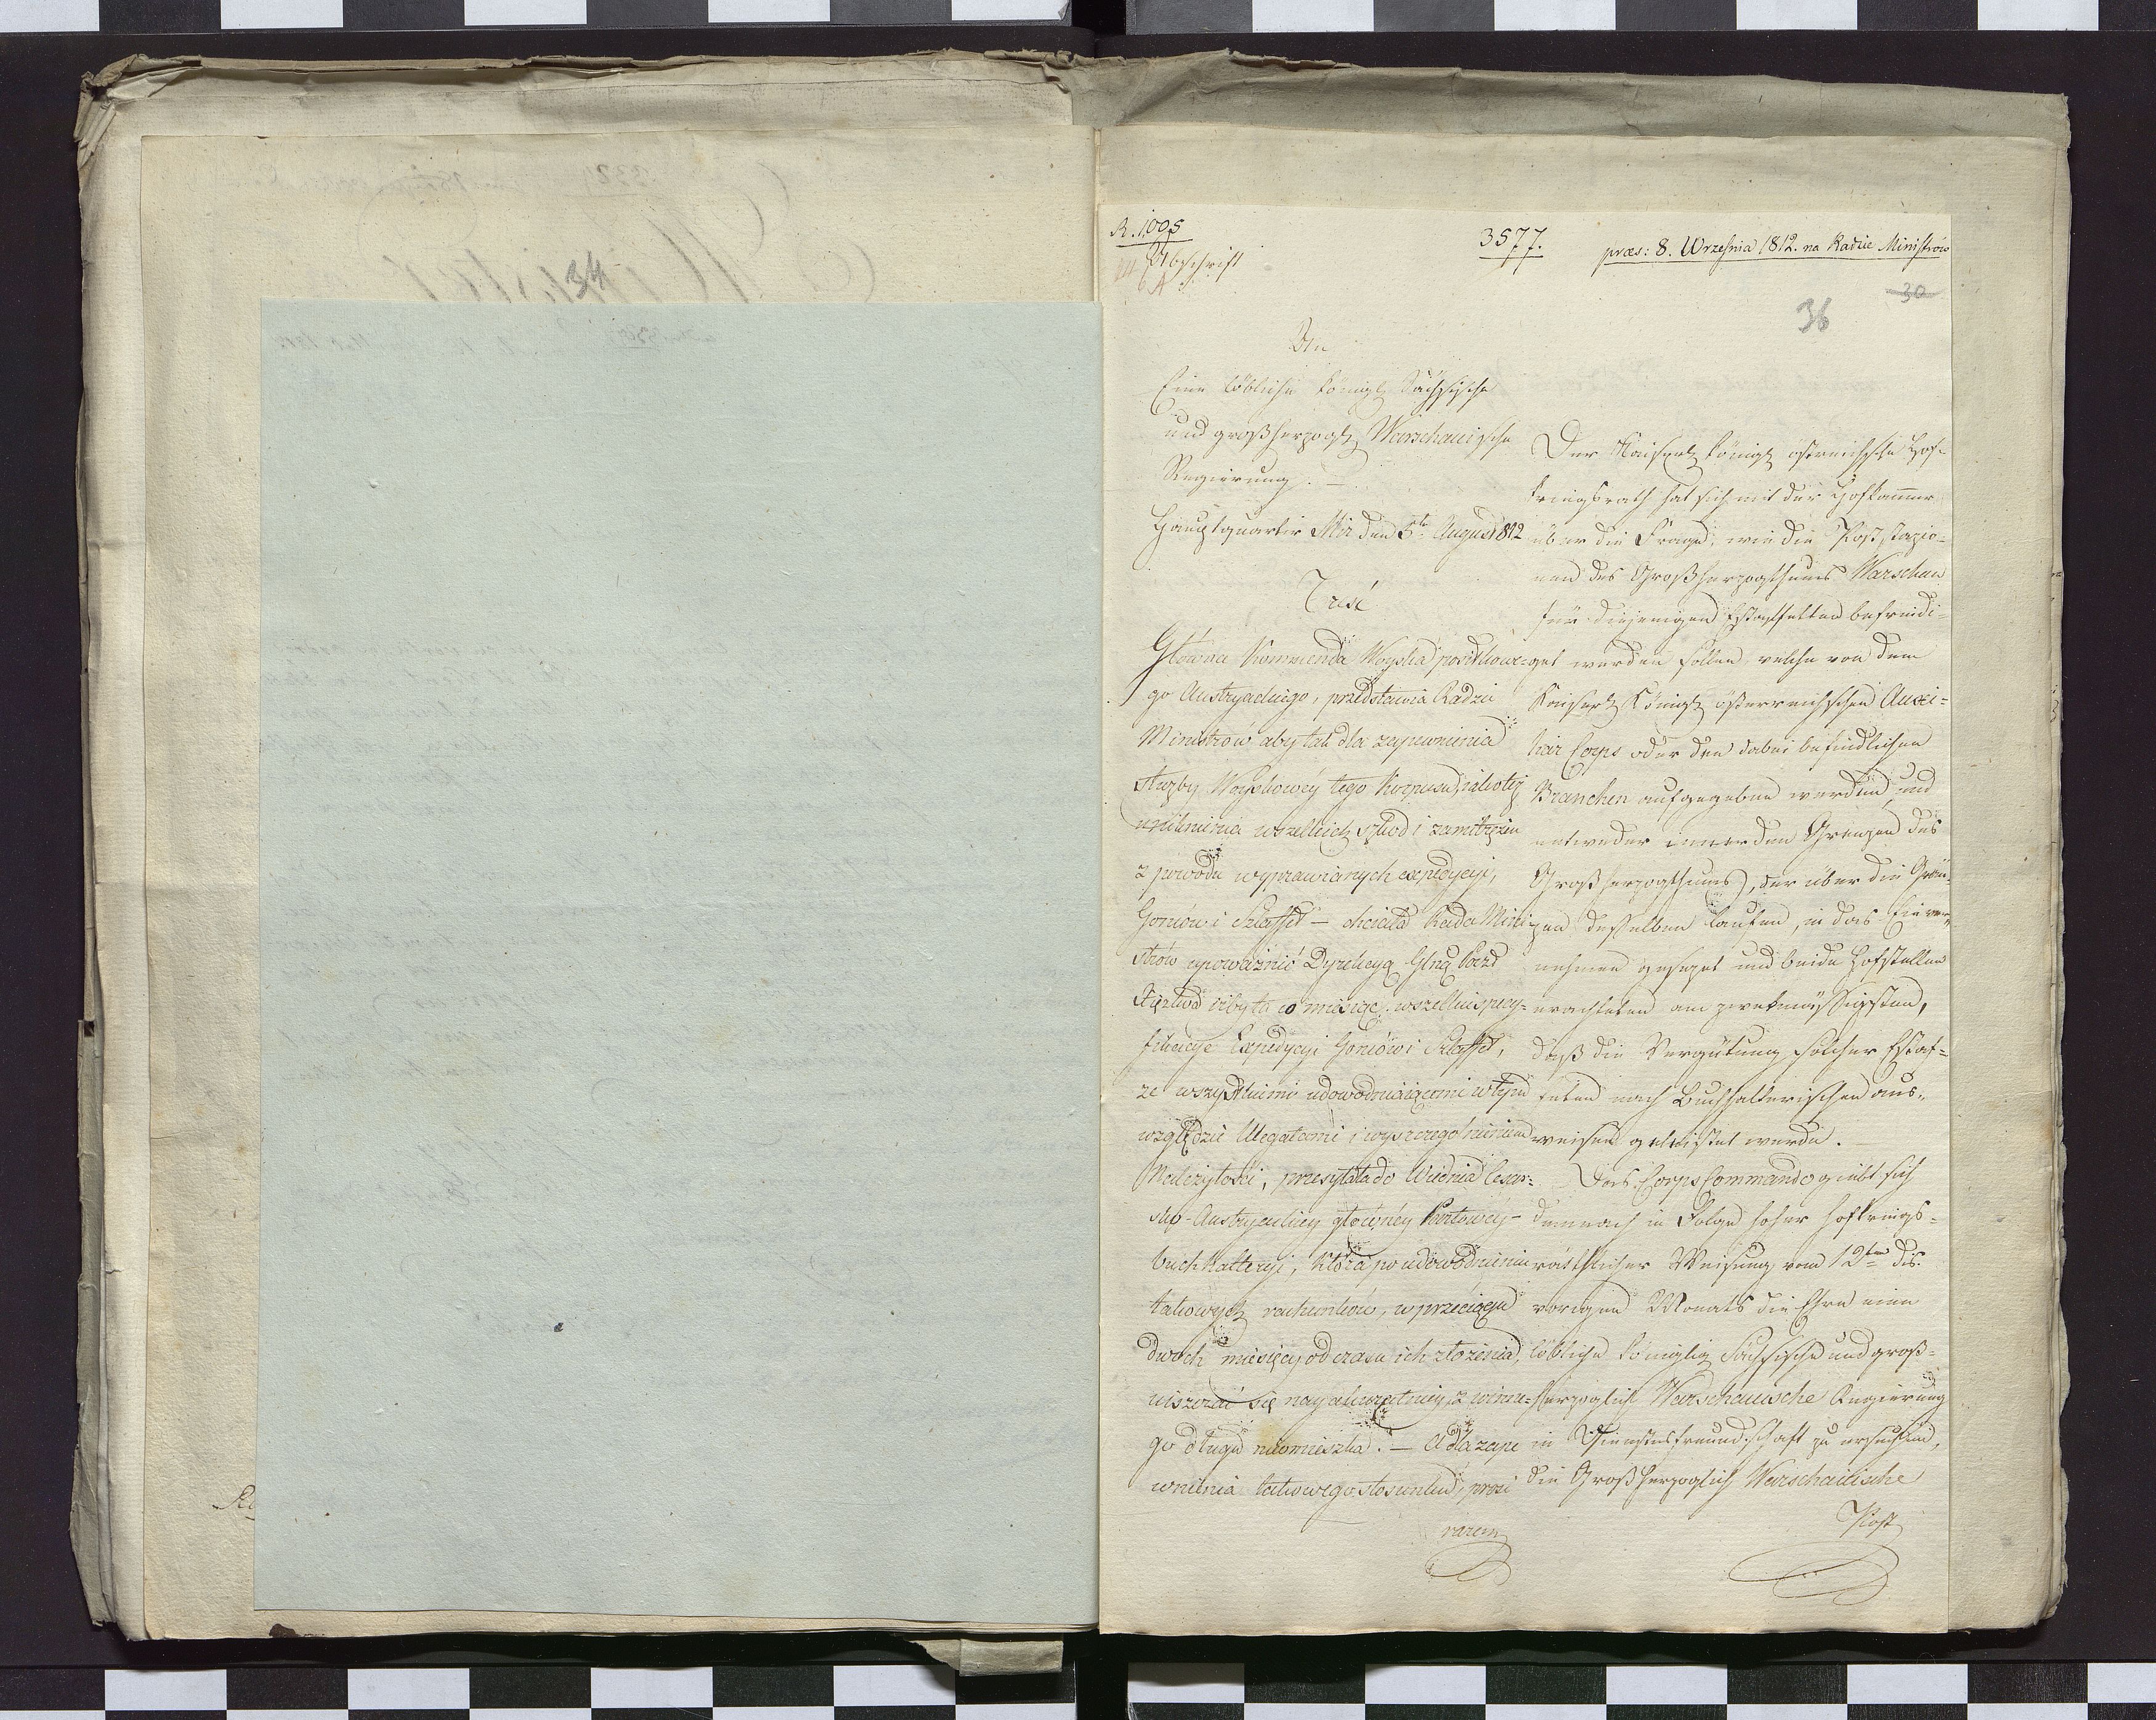 34
R. 1,005
Abschrift
3577.
præs: 8. Września 1812. na Radzie Ministrów
30
36
An
Eine löbliche königl Sächsische
und großherzogl Warschauische
Regierung. —
Hauptquartir Mir den 5te August 812
Treść
Główna Kommenda Woyska posiłkowe-
go Austryackiego, przedstawia Radzie
Ministrów aby tak dla zapewnienia
służby Woyskowéy tego Korpusu, iako też
uniknienia wszelkich szkod i zamitrężen
z powodu wyprawianych expedycyi,
Gońców i Sztaffet — chciała Rada Mini-
strów upoważnić Dyrekcyą Glną Poczt
Xięztwa iżby ta co miesiąc, wszelkie specy-
fikacye Expedycyi Gońców i Sztaffet,
ze wszystkiemi udowodniaiącemi w tym
względzie Allegatami i wyszczególnieniem
Należytości, przesyłała do Wiednia Cesar-
sko-Austryackiey głównéy Pocztowéy
buchhalteryi, która po udowodnieniu
takowych rachunków, w przeciągu
dwoch miesięcy od czasu ich złożenia,
uiszczać się nayakuratniey z winne-
go długu nieomieszka. — A dla zape
wnienia takowego stosunku, prosi
razem
Der Kaiserl königl östreichsche Hof-
kriegsrath hat sich mit der Hofkammer
über die Frage, wie die Poststazio-
nen des Großherzogthums Warschau
für diejenigen Estaffetten befriedi-
get werden sollen, welche von dem
Kaiserl Königl österreichschen Auxi-
liär Corps oder den dabei befindlichen
Branchen aufgegeben werden und
entweder inner den Grenzen des
Großherzogthums, oder über die Grän-
zen desselben laufen, in das Einver-
nehmen gesezet und beide Hofstellen
erachteten am zwekmässigsten,
daß die Vergütung solcher Estaf-
feten nach Buchhalterischen aus-
weisen geleistet werde.
Das Corps Commando giebt sich
demnach in Folge hoher Hofkriegs-
räthlicher Weisung vom 12ten des
vorigen Monats die Ehre eine
löbliche königlig Sächsische und groß-
herzoglich Warschauische Regierung
in Dienstesfreundschaft zu ersuchen,
die Großherzoglich Warschauische
Post